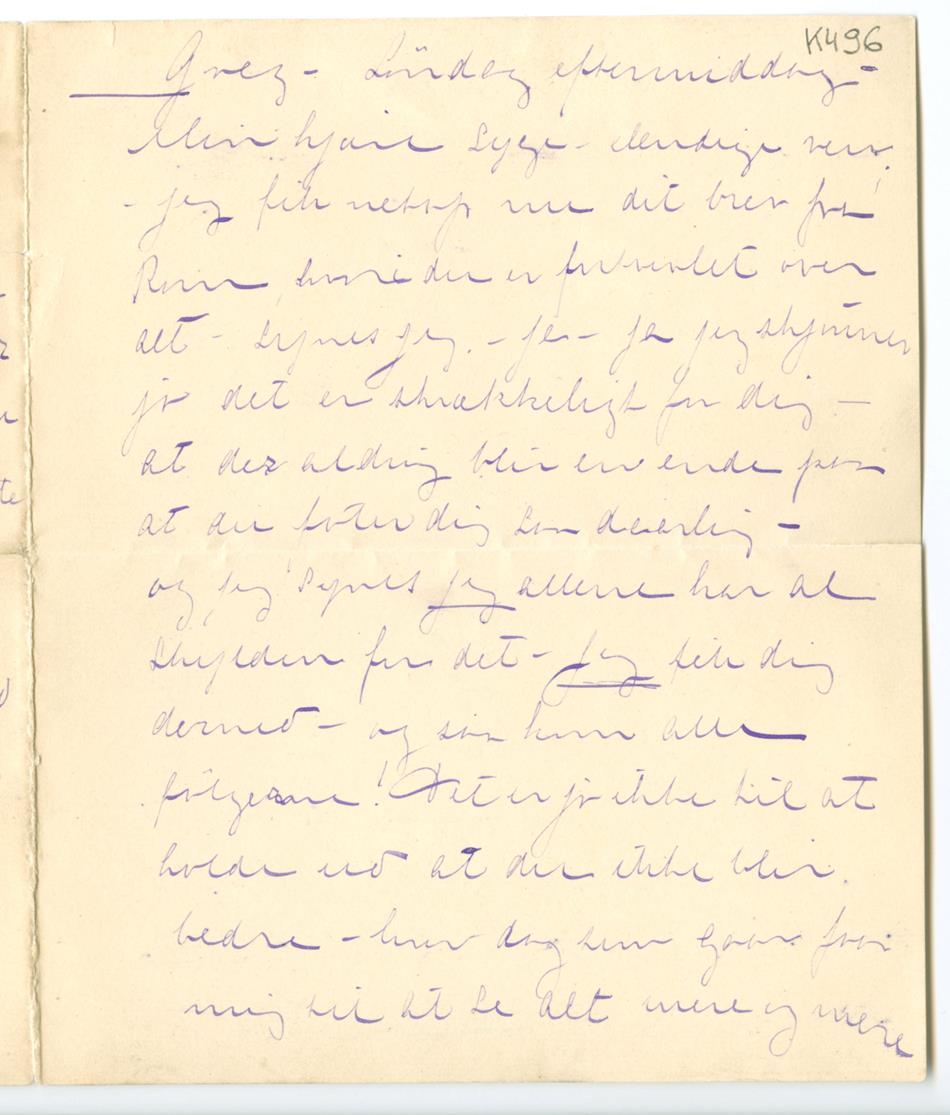 K496
Grez - Löndag eftermiddag -
Min kjære syge - elendige ven!
- jeg fik netop nu dit brev fra
Rom, du er fortvivlet over
det - synes jeg. - Ja - ja jeg skjönner
jo det er skrækkeligt for dig -
at det aldrig blir en ende paa
at du föler dig saa daarlig -
og jeg synes jeg allene har al
skylden for det - jeg fik dig
derned - og saa kom alle
fölgerne! Det er jo ikke til at
holde ud at du ikke blir
bedre - hver dag som gaar faar
mig til at se alt mere og mere